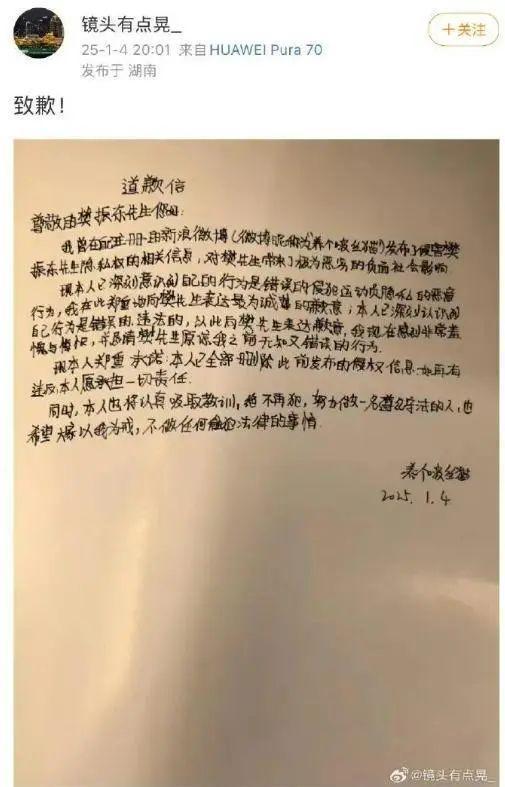 镜头有点晃_
+关注
25-1-4 20:01 来自HUAWEI Pura 70
发布于 湖南
致歉！
道歉信
尊敬的樊振东先生你好：
我曾在此注册的新浪微博(微博昵称为养个波丝猫)发布了侵害樊
振东先生隐私权的相关信息，对樊先生带来了极为恶劣的负面社会影响
现本人已深刻意识到自己的行为是错误的侵犯运动员隐私的恶意
行为，我在此郑重地向樊先生表达最为诚挚的歉意；本人已深刻认识到
自己行为是错误的、违法的，以此向樊先生表达歉意，我现在感到非常羞
愧与悔恨，并恳请樊先生原谅我之前无知又错误的行为.
现本人郑重承诺：本人已全部删除此前发布的侵权信息.如再有
违反，本人愿承担一切责任.
同时，本人也将认真吸取教训，绝不再犯，努力做一名遵纪守法的人，也
希望大家以我为戒，不做任何触犯法律的事情.
养个波丝猫
2025. 1. 4
@镜头有点晃_